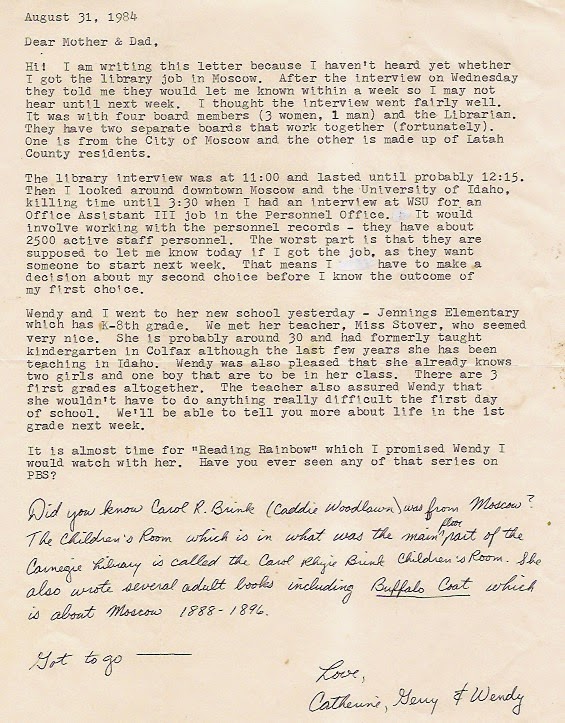 August 31, 1984
Dear Mother & Dad,
Hi!  I am writing this letter because I haven't heard yet whether
I got the library job in Moscow.  After the interview on Wednesday
they told me they would let me known within a week so I may not
hear until next week.  I thought the interview went fairly well.
It was with four board members (3 women, 1 man) and the Librarian.
They have two separate boards that work together (fortunately).
One is from the City of Moscow and the other is made up of Latah
County residents.
The library interview was at 11:00 and lasted until probably 12:15.
Then I looked around downtown Moscow and the University of Idaho,
killing time until 3:30 when I had an interview at WSU for an
Office Assistant III job in the Personnel Office.  It would
involve working with the personnel records - they have about
2500 active staff personnel.  The worst part is that they are
supposed to let me know today if I got the job, as they want
someone to start next week.  That means I      have to make a
decision about my second choice before I know the outcome of
my first choice.
Wendy and I went to her new school yesterday - Jennings Elementary
which has K-8th grade.  We met her teacher, Miss Stover, who seemed
very nice.  She is probably around 30 and had formerly taught
kindergarten in Colfax although the last few years she has been
teaching in Idaho.  Wendy was also pleased that she already knows
two girls and one boy that are to be in her class.  There are 3
first grades altogether.  The teacher also assured Wendy that
she wouldn't have to do anything really difficult the first day
of school.  We'll be able to tell you more about life in the 1st
grade next week.
It is almost time for "Reading Rainbow" which I promised Wendy I
would watch with her.  Have you ever seen any of that series on
PBS?
Did you know Carol R. Brink (Caddie Woodlawn) was from Moscow?
The Children's Room which is in what was the main floor part of the
Carnegie Library is called the Carol Rhyie Brink Children's Room. She
also wrote several adult books including Buffalo Coat which
is about Moscow 1888-1896.
Got to go ——
Love,
Catherine, Gerry & Wendy